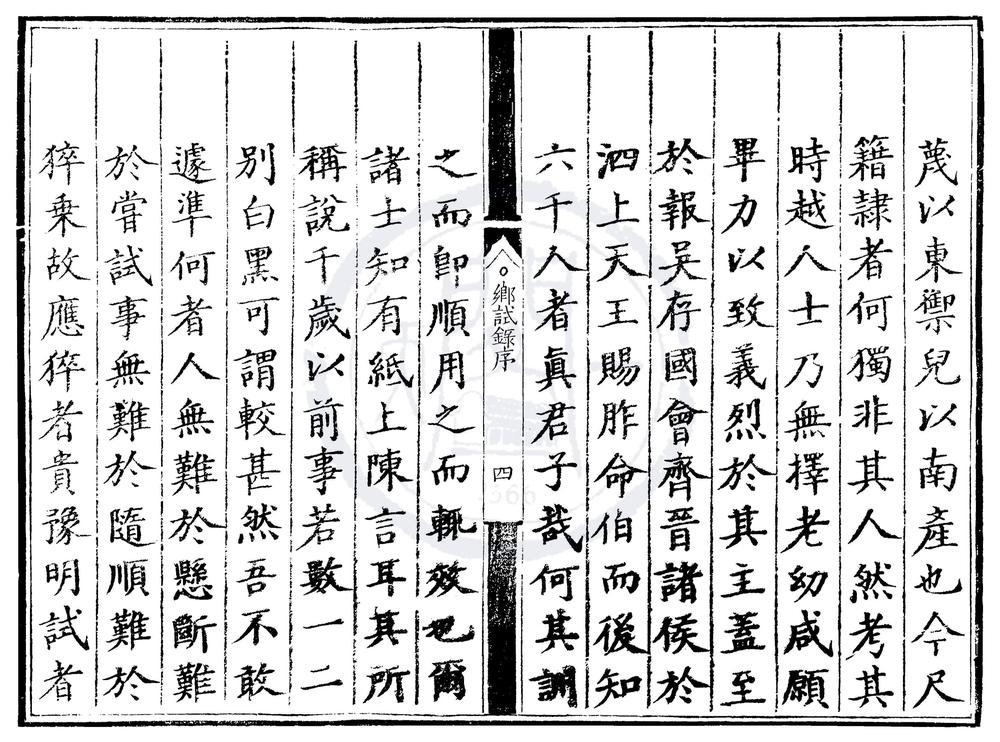 蔑以東禦兒以南產也今尺
籍隷者何獨非其人然考其
時越人士乃無擇老幼咸願
畢力以致義烈於其主蓋至
於報吳存國會齊晉諸侯於
泗上天王賜胙命伯而後知
六千人者眞君子哉何其
鄉試錄序
四
之而卽順用之而輒效也爾
諸士知有紙上陳言耳其所
稱說千歲以前事若數一二
別白黑可謂較甚然吾不敢
遽準何者人無難於懸斷難
於嘗試事無難於隨順難於
猝乗故應猝者貴豫明試者